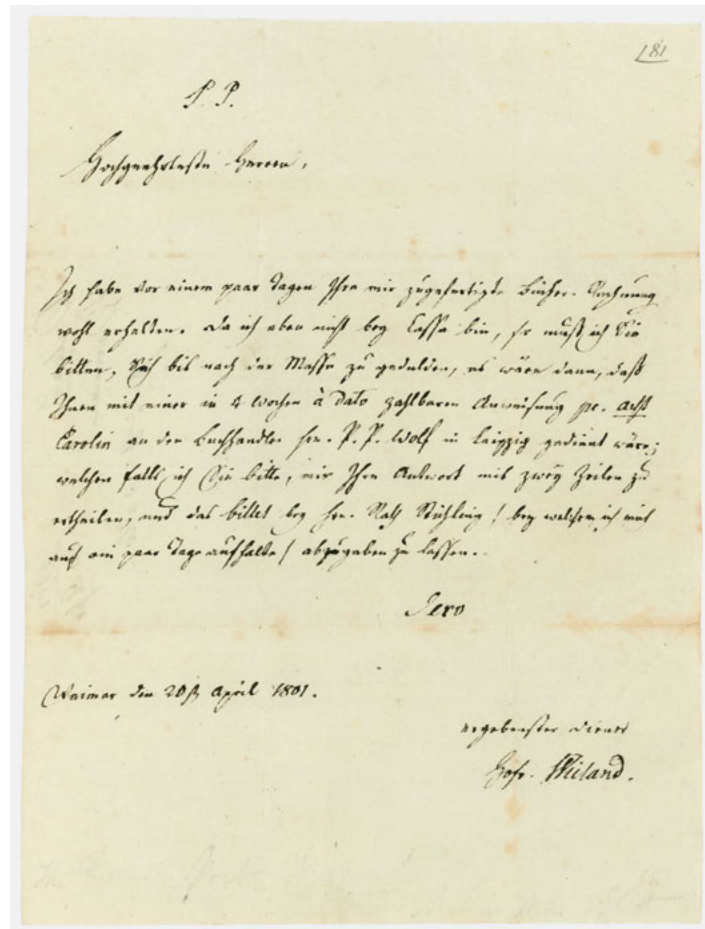 181
P. P.
Hochgeehrteste Herren,
Ich habe vor einem paar Tagen Ihre mir zugefertigte Bücher-Rechnung
wohl erhalten. Da ich aber nicht bey Cassa bin, so muß ich Sie
bitten, Sich bis nach der Messe zu gedulden, es wäre dann, daß
Ihnen mit einer in 4 Wochen à Dato zahlbaren Anweisung pr. acht
Carolin an den Buchhandler Hrn. P. P. Wolf in Leipzig gedient wäre;
welchen Falls ich Sie bitte, mir Ihre Antwort mit zwey Zeilen zu
ertheilen, und das Billet bey Hrn. Rath / bey welchem ich mich
auf ein paar Tage aufhalte / abzugeben zu lassen.
Dero
Weimar den 20st April 1801.
ergebenster Diener
Hofr. Wieland.